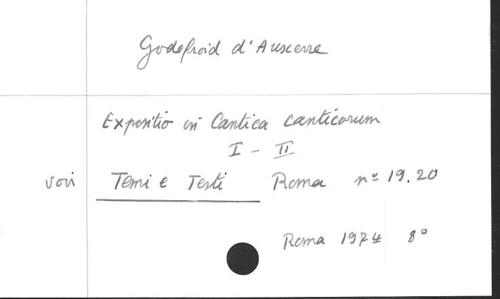 Godefroid d'Auxerre
Expositio in Cantica canticorum
I - II
voir Temi e Testi Roma nº 19.20
Roma 1974 8°